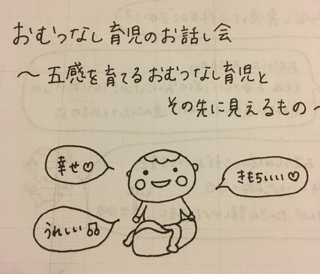 おむつなし育児のお話し会
～五感を育てるおむつなし育児と
その先に見えるもの～
幸せ♡
きもちいい♡
うれしい♫